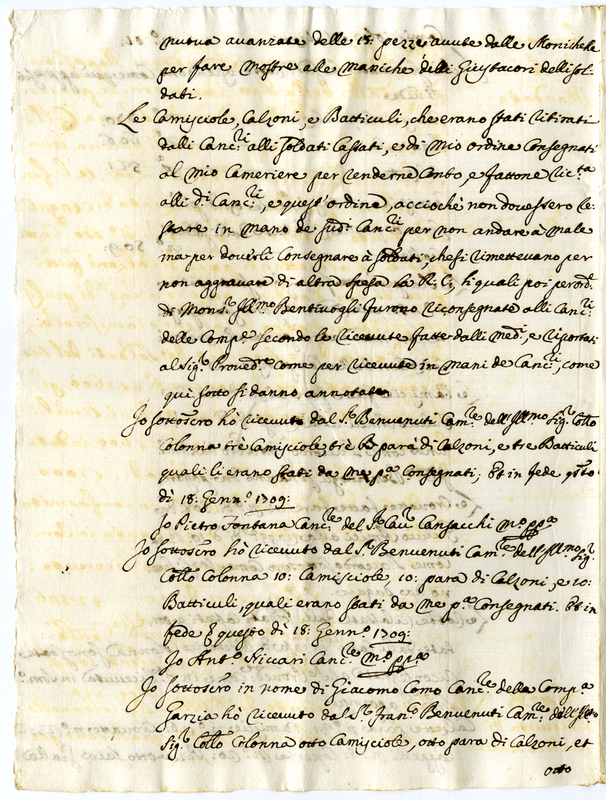 nutua avanzate delle 18: pezze avute dalle Monichelle
per fare mostre alle maniche delli Giustacori delli sol-
dati.
Le Camisciole, Calzoni, e Batticuli, che erano stati ritirati
dalli Canc.ri alli soldati Cassati, e di mio ordine Consegnati
al mio Cameriere per renderne Conto, e fattone ric.ta
alli d.i Canc.ri, e quest'ordine, acciochè non dovessero re-
stare in mano de sud.i Canc.ri per non andare à male
ma per doverli Consegnare à soldati, che si rimettevano per
non aggravare di altra spesa la R. C., li quali poi per ord.e
di Mons.re Ill.mo Bentivogli furono riconsegnate alli Canc.ri
delle Comp.e secondo le ricevute fatte dalli med.i, e riportati
al Sig.r Proved.re come per ricevute in mani de Canc.ri, come
qui sotto si danno annotate
Io sottoscro hò ricevuto dal S.r Benvenuti Cam.re dell'Ill.mo Sig.r Collo
Colonna trè Camisciole, trè para di Calzoni, e tre Batticuli
quali li erano stati da me p.a Consegnati; Et in fede q.sto
di 18: Genn.o 1709:
Io Pietro Fontana Canc.re del S.r Cau.r Cansacchi m.o pp.a
Io sottoscro hò ricevuto dal S.r Benvenuti Cam.re dell'Ill.mo Sig.r
Collo Colonna 10: Camisciole, 10: para di Calzoni, e 10:
Batticuli, quali erano stati da me p.a Consegnati. Et in
fede questo dì 18: Genn.o 1709:
Io Ant.o Riccari Canc.re m.o pp.a
Io sottoscro in nome di Giacomo Como Canc.re della Comp.a
Garzia hò ricevuto dal S.r Fran.co Benvenuti Cam.re dell'Ill.mo
Sig.r Collo Colonna otto Camisciole, otto para di Calzoni, et
otto